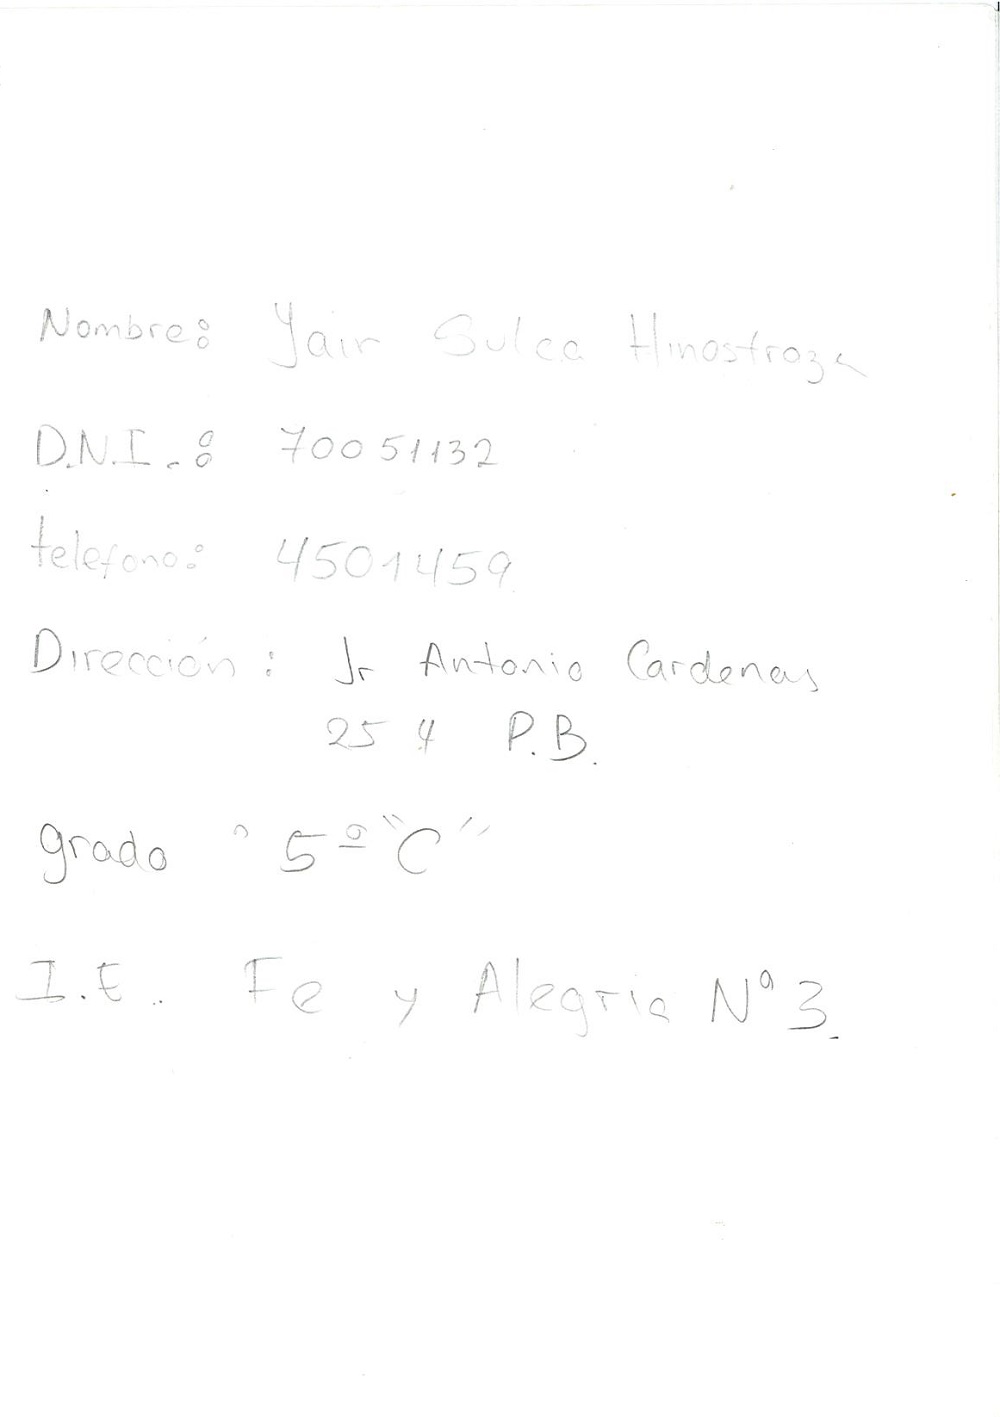 Nombre: Yair Sulca Hinostroza
D.N.I.: 70051132
telefono: 4501459
Dirección: Jr Antonio Cardenas
254 P.B.
grado " 5º "C"
I.E. Fe y Alegria Nº 3.